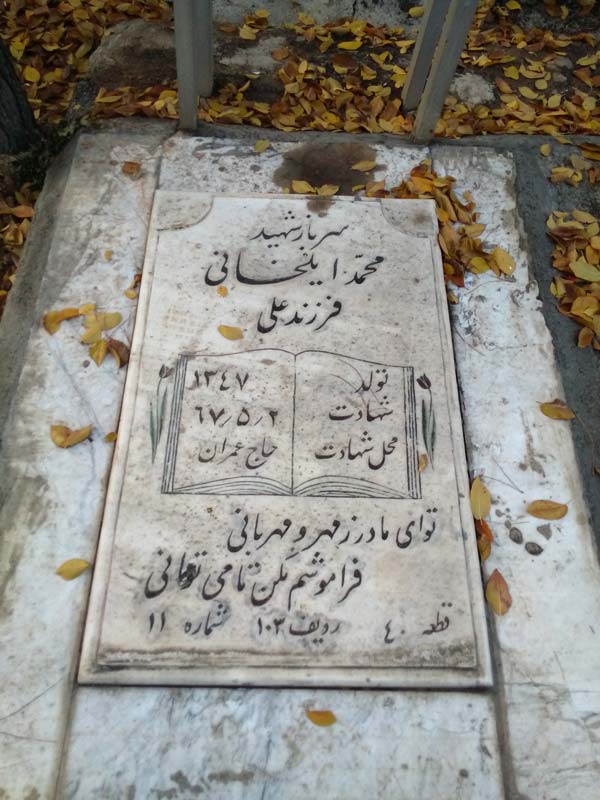 سرباز شهید
محمّد ایلخانی
فرزند علی
تولد ۱۳۴۷
شهادت ۶۷/۵/۲
محل شهادت حاج عمران
توای مادر ز مهر و مهربانی
فراموشم مکن تا می توانی
قطعه ۴۰ ردیف ۱۰۳ شماره ۱۱